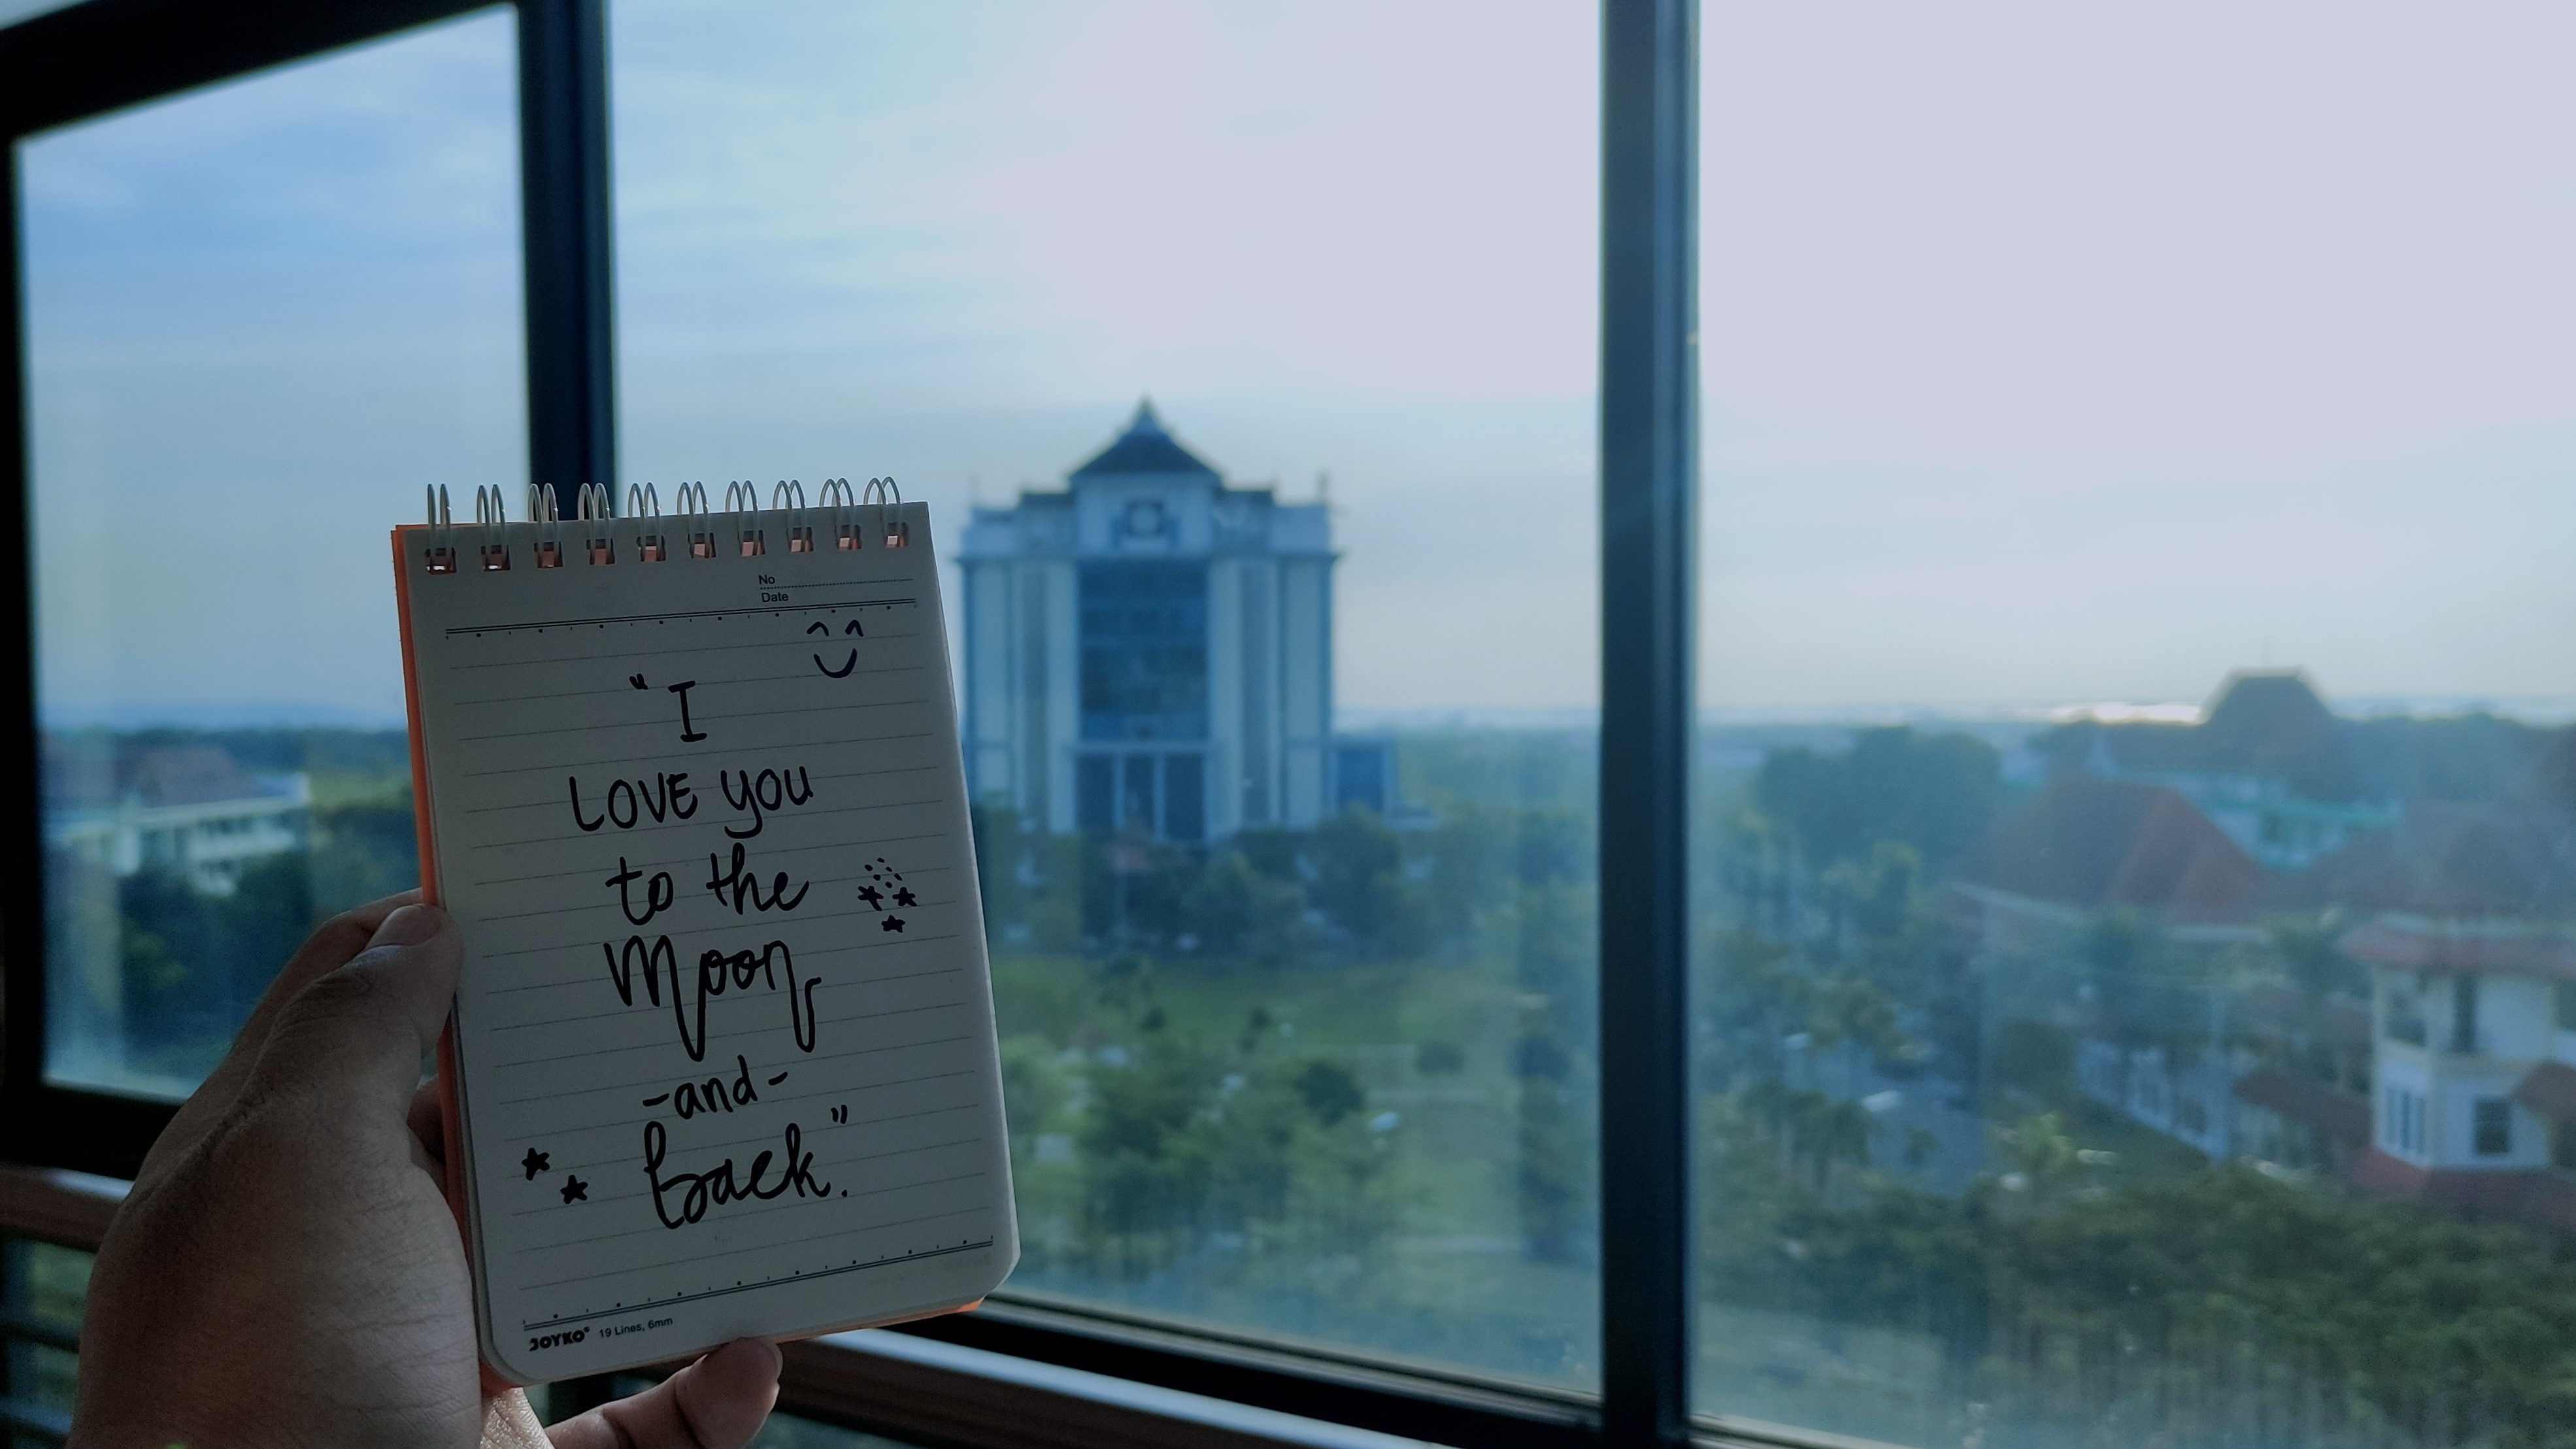 No
Date
"I
LOVE you
to the
Moon
-and-
back".
JOYKO® 19 Lines, 6mm